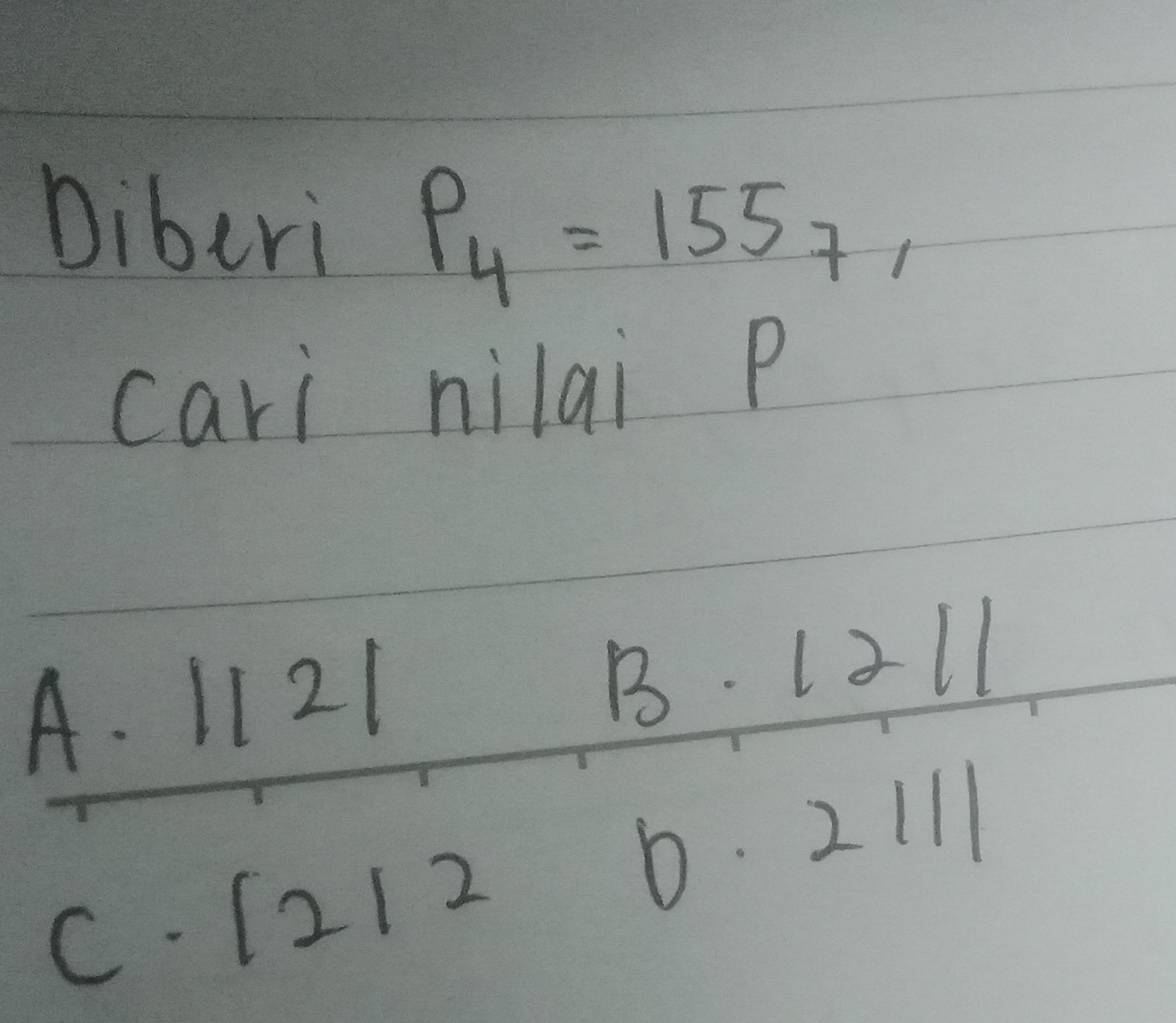 Diberi P₄ = 155₇,
cari nilai P
A. 1121 B. 1211
C. 1212 D. 2111